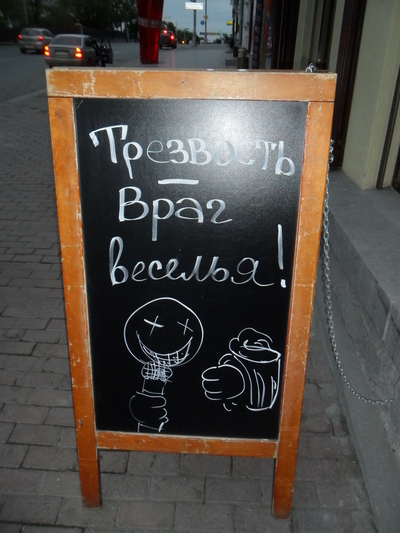 Трезвость
–
Враг
веселья!